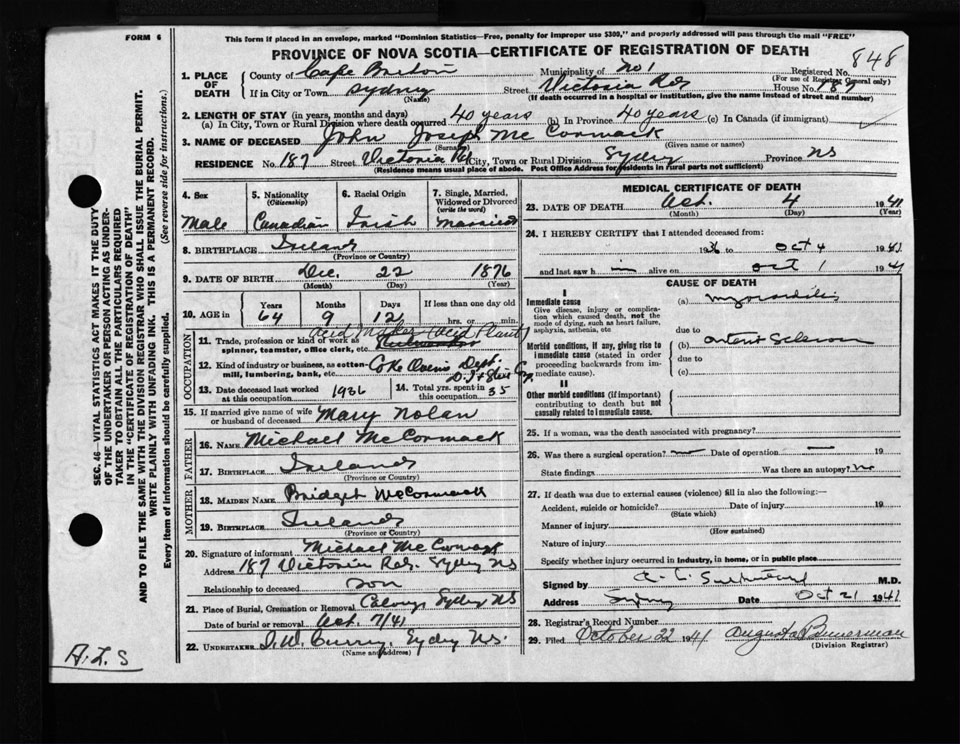 FORM 6
This form if placed in an envelope, marked "Dominion Statistics—Free, penalty for improper use $300," and properly addressed will pass through the mail "FREE"
PROVINCE OF NOVA SCOTIA—CERTIFICATE OF REGISTRATION OF DEATH
848
1. PLACE OF DEATH
County of Cape Breton Municipality of No 1 Registered No.
(For use of Registrar General only)
If in City or Town Sydney Street Victoria Rd House No. 187
(Name) (If death occurred in a hospital or institution, give the name instead of street and number)
2. LENGTH OF STAY (in years, months and days)
(a) In City, Town or Rural Division where death occurred 40 years (b) In Province 40 years (c) In Canada (if immigrant)
3. NAME OF DECEASED John Joseph Mc Cormack
(Surname) (Given name or names)
RESIDENCE No. 187 Street Victoria Rd City, Town or Rural Division Sydney Province NS
(Residence means usual place of abode. Post Office Address for residents in rural parts not sufficient)
4. Sex Male
5. Nationality (Citizenship) Canadian
6. Racial Origin Irish
7. Single, Married, Widowed or Divorced (write the word) Married
8. BIRTHPLACE Ireland
(Province or Country)
9. DATE OF BIRTH Dec. 22 1876
(Month) (Day) (Year)
10. AGE in Years 64 Months 9 Days 12 If less than one day old hrs. or min.
OCCUPATION
11. Trade, profession or kind of work as spinner, teamster, office clerk, etc. Acid Maker (Acid Plant)
12. Kind of industry or business, as cotton-mill, lumbering, bank, etc. Coke Ovens Dept.
13. Date deceased last worked at this occupation 1936
14. Total yrs. spent in this occupation 35
15. If married give name of wife or husband of deceased Mary Nolan
FATHER
16. NAME Michael McCormack
17. BIRTHPLACE Ireland
(Province or Country)
MOTHER
18. MAIDEN NAME Bridget McCormack
19. BIRTHPLACE Ireland
(Province or Country)
20. Signature of informant Michael McCormack
Address 187 Victoria Rd. Sydney NS
Relationship to deceased son
21. Place of Burial, Cremation or Removal Calvary Sydney NS
Date of burial or removal Oct. 7/41
22. UNDERTAKER Curry, Sydney NS.
(Name and address)
MEDICAL CERTIFICATE OF DEATH
23. DATE OF DEATH Oct. 4 1941
(Month) (Day) (Year)
24. I HEREBY CERTIFY that I attended deceased from:
1936 to Oct 4 1941
and last saw h im alive on Oct 1 1941
CAUSE OF DEATH
I
Immediate cause
Give disease, injury or complication which caused death, not the mode of dying, such as heart failure, asphyxia, asthenia, etc
(a) Myocarditis
due to
Morbid conditions, if any, giving rise to immediate cause (stated in order proceeding backwards from immediate cause)
(b)
due to
(c)
II
Other morbid conditions (if important) contributing to death but not causally related to immediate cause.
25. If a woman, was the death associated with pregnancy?
26. Was there a surgical operation? no Date of operation 19
State findings Was there an autopsy? no
27. If death was due to external causes (violence) fill in also the following:—
Accident, suicide or homicide? Date of injury 19
(State which)
Manner of injury
(How sustained)
Nature of injury
Specify whether injury occurred in industry, in home, or in public place
Signed by M.D.
Address Sydney Date Oct 21 1941
28. Registrar's Record Number
29. Filed October 22 1941 Augusta Bannerman
(Division Registrar)
SEC. 46—VITAL STATISTICS ACT MAKES IT THE DUTY
OF THE UNDERTAKER OR PERSON ACTING AS UNDERTAKER
TO OBTAIN ALL THE PARTICULARS REQUIRED
IN THE "CERTIFICATE OF REGISTRATION OF DEATH"
AND TO FILE THE SAME WITH THE DIVISION REGISTRAR WHO SHALL ISSUE THE BURIAL PERMIT.
WRITE PLAINLY WITH UNFADING INK. THIS IS A PERMANENT RECORD.
Every item of information should be carefully supplied. (See reverse side for instructions.)
A.L.S